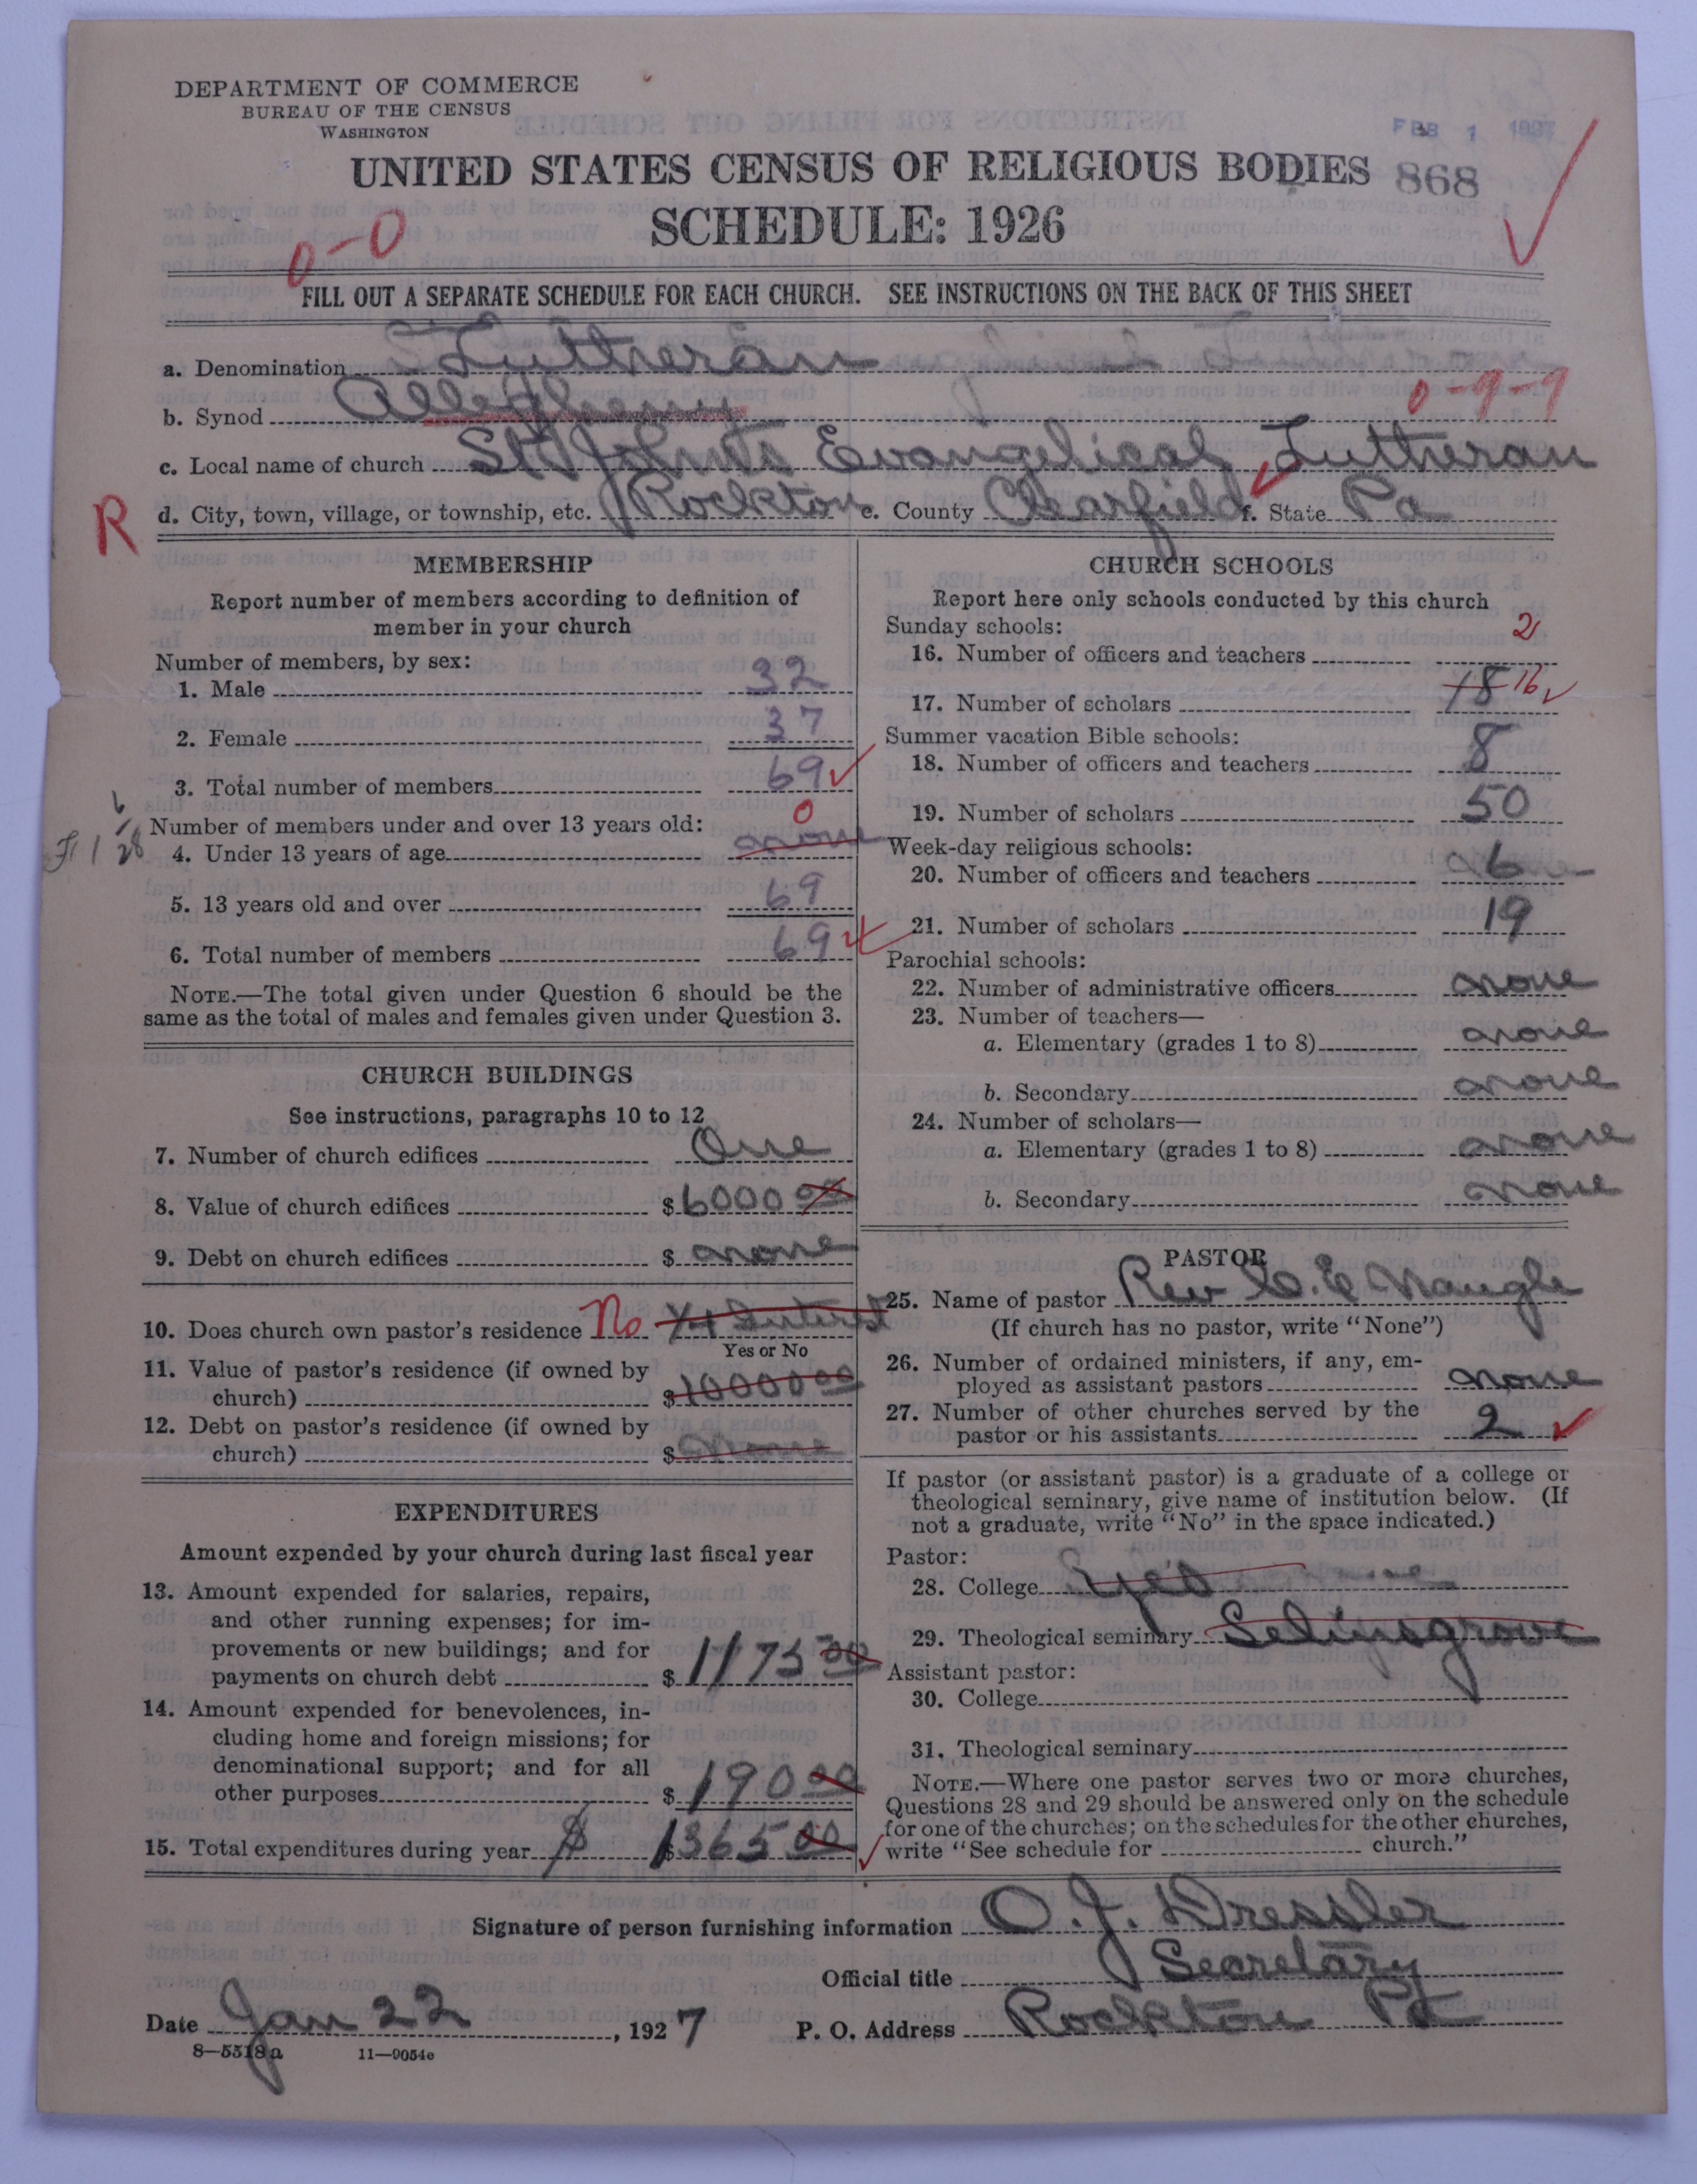 DEPARTMENT OF COMMERCE
BUREAU OF THE CENSUS
WASHINGTON
FEB 1 1927
UNITED STATES CENSUS OF RELIGIOUS BODIES 868
SCHEDULE: 1926
0-0
FILL OUT A SEPARATE SCHEDULE FOR EACH CHURCH. SEE INSTRUCTIONS ON THE BACK OF THIS SHEET
a. Denomination Lutheran
b. Synod Allegheny 0-9-9
c. Local name of church St John's Evangelical Lutheran
R d. City, town, village, or township, etc. Rockton e. County Clearfield f. State Pa
MEMBERSHIP
Report number of members according to definition of
member in your church
Number of members, by sex:
1. Male 32
2. Female 37
3. Total number of members 69
Number of members under and over 13 years old:
4. Under 13 years of age none 0
5. 13 years old and over 69
6. Total number of members 69
NOTE.—The total given under Question 6 should be the
same as the total of males and females given under Question 3.
CHURCH BUILDINGS
See instructions, paragraphs 10 to 12
7. Number of church edifices One
8. Value of church edifices $6000 00
9. Debt on church edifices $ none
10. Does church own pastor's residence No
Yes or No
11. Value of pastor's residence (if owned by
church) $1000 00
12. Debt on pastor's residence (if owned by
church) $ none
EXPENDITURES
Amount expended by your church during last fiscal year
13. Amount expended for salaries, repairs,
and other running expenses; for im-
provements or new buildings; and for
payments on church debt $ 1175 00
14. Amount expended for benevolences, in-
cluding home and foreign missions; for
denominational support; and for all
other purposes $ 190 00
15. Total expenditures during year $ 1365 00
CHURCH SCHOOLS
Report here only schools conducted by this church
Sunday schools:
16. Number of officers and teachers 2
17. Number of scholars 18 16
Summer vacation Bible schools:
18. Number of officers and teachers 8
19. Number of scholars 50
Week-day religious schools:
20. Number of officers and teachers 6
21. Number of scholars 19
Parochial schools:
22. Number of administrative officers none
23. Number of teachers—
a. Elementary (grades 1 to 8) none
b. Secondary none
24. Number of scholars—
a. Elementary (grades 1 to 8) none
b. Secondary none
PASTOR
25. Name of pastor Rev C. E Naugle
(If church has no pastor, write "None")
26. Number of ordained ministers, if any, em-
ployed as assistant pastors none
27. Number of other churches served by the
pastor or his assistants 2
If pastor (or assistant pastor) is a graduate of a college or
theological seminary, give name of institution below. (If
not a graduate, write "No" in the space indicated.)
Pastor:
28. College Yes
29. Theological seminary Selinsgrove
Assistant pastor:
30. College
31. Theological seminary
NOTE.—Where one pastor serves two or more churches,
Questions 28 and 29 should be answered only on the schedule
for one of the churches; on the schedules for the other churches,
write "See schedule for church."
Signature of person furnishing information O. J. Dressler
Official title Secretary
Date Jan 22, 1927 P. O. Address Rockton Pa
8—5518a 11—9054e